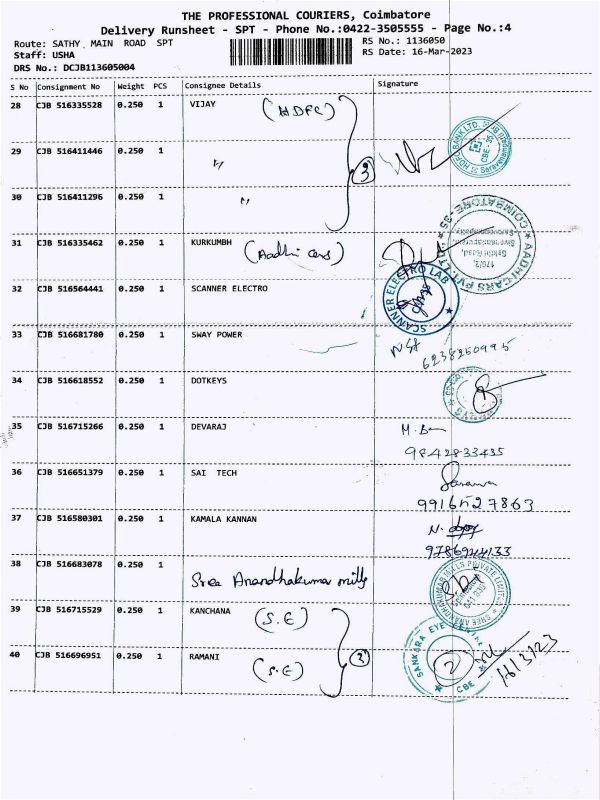 THE PROFESSIONAL COURIERS, Coimbatore
Delivery Runsheet - SPT - Phone No.:0422-3505555 - Page No.:4
Route: SATHY MAIN ROAD SPT
RS No.: 1136050
Staff: USHA
RS Date: 16-Mar-2023
DRS No.: DCJB113605004
S No Consignment No Weight PCS Consignee Details Signature
28 CJB 516335528 0.250 1 VIJAY (HDFC)
29 CJB 516411446 0.250 1 〃 3
30 CJB 516411296 0.250 1 〃
31 CJB 516335462 0.250 1 KURKUMBH (Aadhi Cars)
AADHI CARS PVT. LTD. * COIMBATORE-35 *
32 CJB 516564441 0.250 1 SCANNER ELECTRO
SCANNER ELECTRO LAB
33 CJB 516681780 0.250 1 SWAY POWER
6238260995
34 CJB 516618552 0.250 1 DOTKEYS
35 CJB 516715266 0.250 1 DEVARAJ
9842833435
36 CJB 516651379 0.250 1 SAI TECH
9916527863
37 CJB 516580301 0.250 1 KAMALA KANNAN
38 CJB 516683078 0.250 1 Sree Anandhakumar mills
39 CJB 516715529 0.250 1 KANCHANA (S.E)
40 CJB 516696951 0.250 1 RAMANI (S.E) 3
SANKARA EYE CENTRE
CBE
2
16/3/23